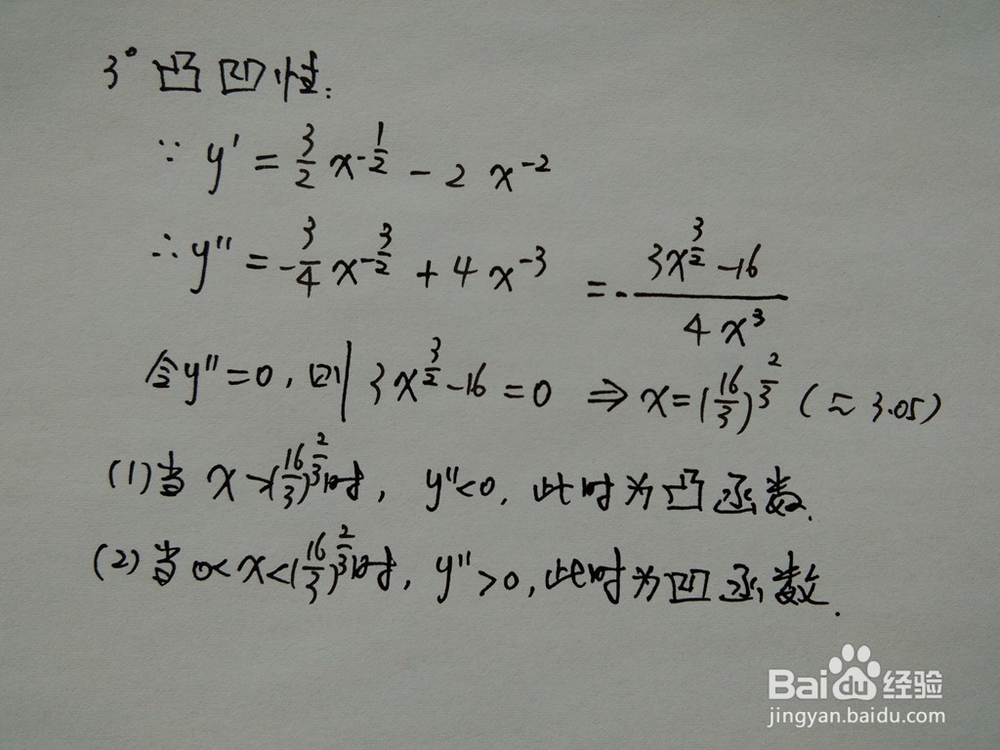 3° 凸凹性:
∵ y' = 3/2 x^(-1/2) - 2 x^(-2)
∴ y'' = -3/4 x^(-3/2) + 4 x^(-3) = - (3x^(3/2) - 16)/(4x^3)
令y''=0, 则 3x^(3/2) - 16 = 0 ⇒ x = (16/3)^(2/3) (≈ 3.05)
(1) 当 x > (16/3)^(2/3)时, y''<0, 此时为凸函数.
(2) 当 0< x < (16/3)^(2/3)时, y''>0, 此时为凹函数.
Baidu经验
jingyan.baidu.com